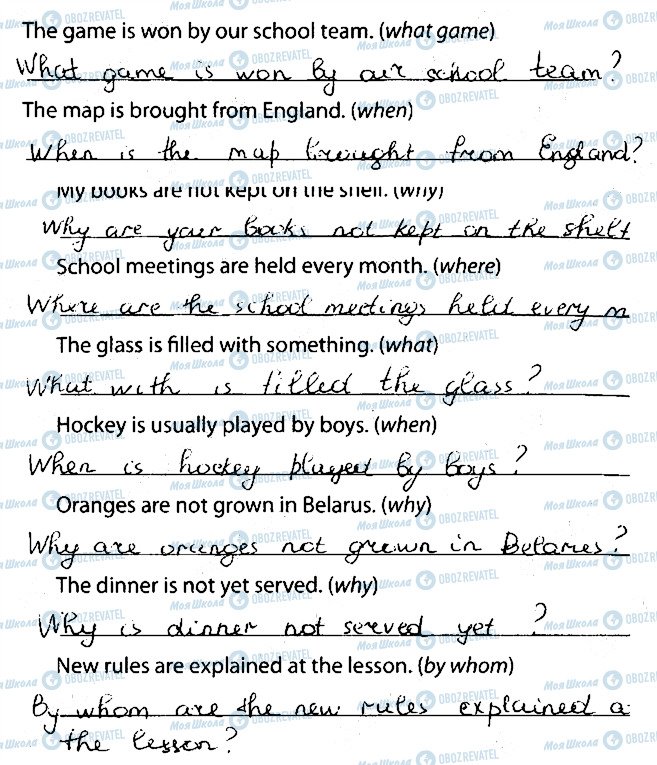 The game is won by our school team. (what game)
What game is won by our school team?
The map is brought from England. (when)
When is the map brought from England?
My books are not kept on the shelf. (why)
Why are your books not kept on the shelf
School meetings are held every month. (where)
Where are the school meetings held every m
The glass is filled with something. (what)
What with is filled the glass?
Hockey is usually played by boys. (when)
When is hockey played by boys?
Oranges are not grown in Belarus. (why)
Why are oranges not grown in Belarus?
The dinner is not yet served. (why)
Why is dinner not served yet ?
New rules are explained at the lesson. (by whom)
By whom are the new rules explained a
the lesson?